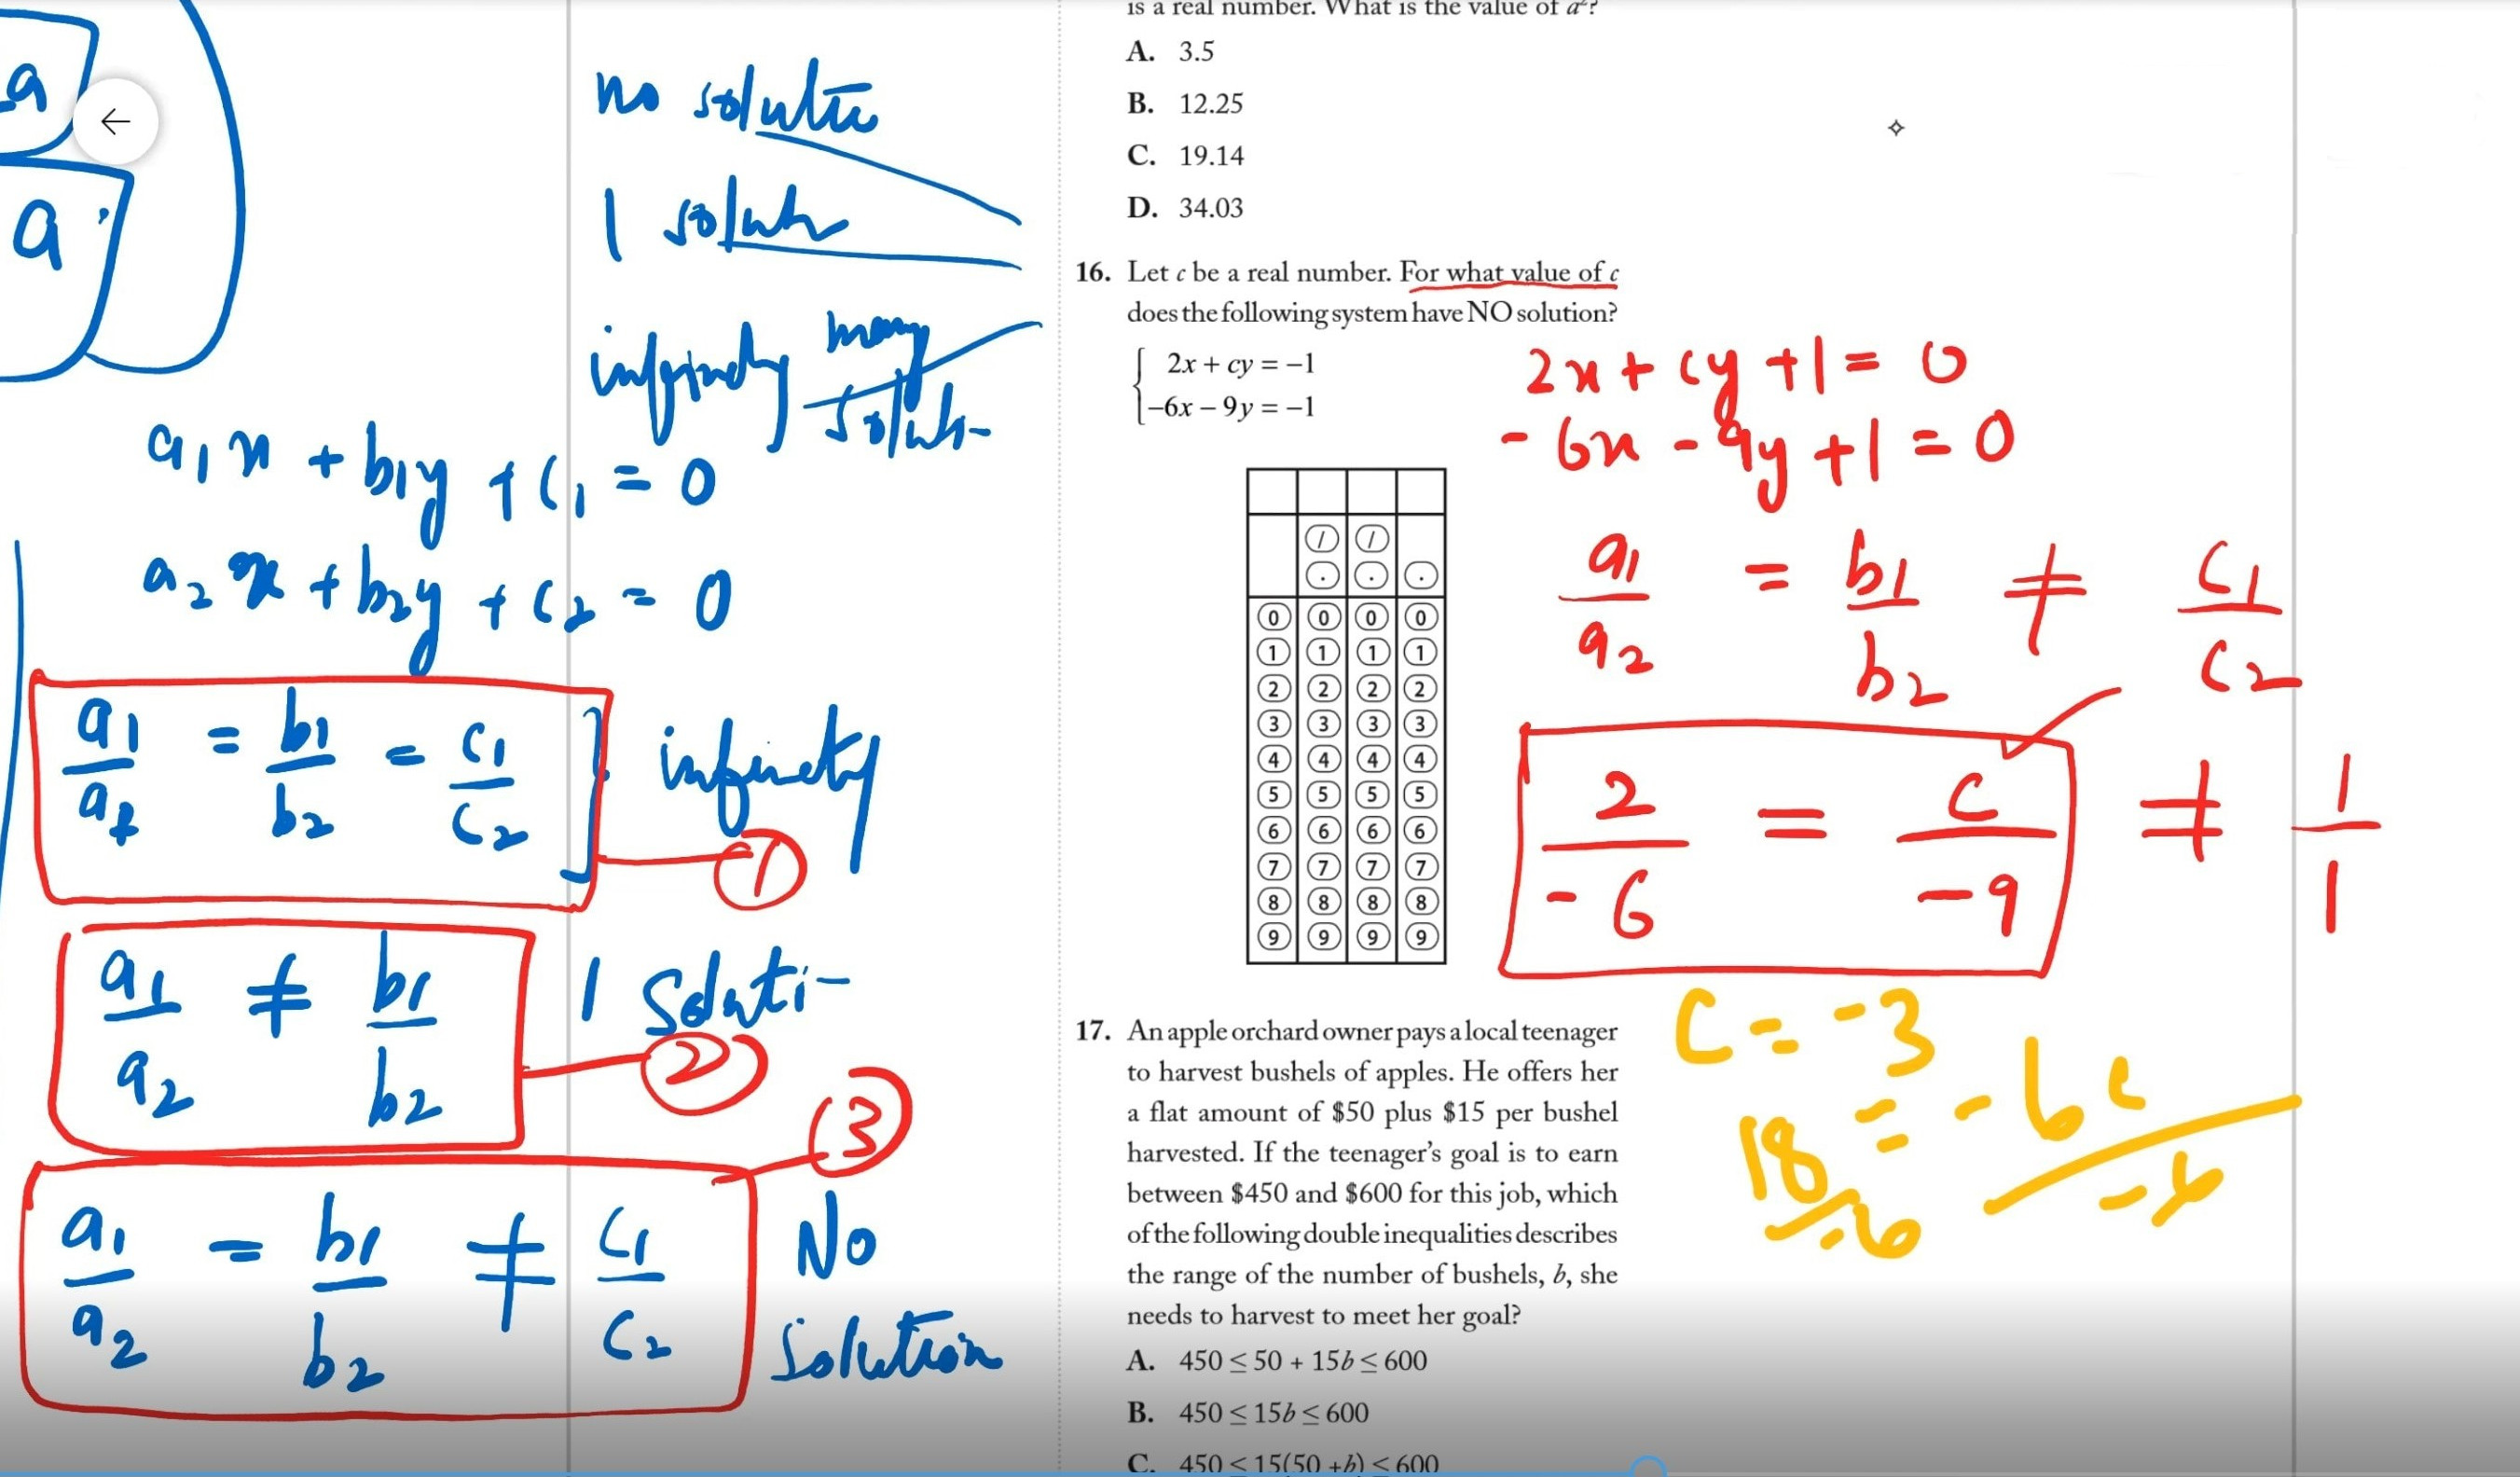 a
a
no
1
many
a₁x + b₁y + c₁ = 0
a₂x + b₂y + c₂ = 0
a₁/a₂ = b₁/b₂ = c₁/c₂
1
a₁/a₂ ≠ b₁/b₂
1
2
3
a₁/a₂ = b₁/b₂ ≠ c₁/c₂
No
Solution
is a real number. What is the value of a²?
A. 3.5
B. 12.25
C. 19.14
D. 34.03
16. Let c be a real number. For what value of c
does the following system have NO solution?
2x + cy = −1
−6x − 9y = −1
/ /
. . .
0 0 0 0
1 1 1 1
2 2 2 2
3 3 3 3
4 4 4 4
5 5 5 5
6 6 6 6
7 7 7 7
8 8 8 8
9 9 9 9
17. An apple orchard owner pays a local teenager
to harvest bushels of apples. He offers her
a flat amount of $50 plus $15 per bushel
harvested. If the teenager's goal is to earn
between $450 and $600 for this job, which
of the following double inequalities describes
the range of the number of bushels, b, she
needs to harvest to meet her goal?
A. 450 ≤ 50 + 15b ≤ 600
B. 450 ≤ 15b ≤ 600
C. 450 ≤ 15(50 + b) ≤ 600
2x + cy + 1 = 0
- 6x - 9y + 1 = 0
a₁/a₂ = b₁/b₂ ≠ c₁/c₂
2/-6 = c/-9 ≠ 1/1
C = -3
18/-6 = -6c/-6